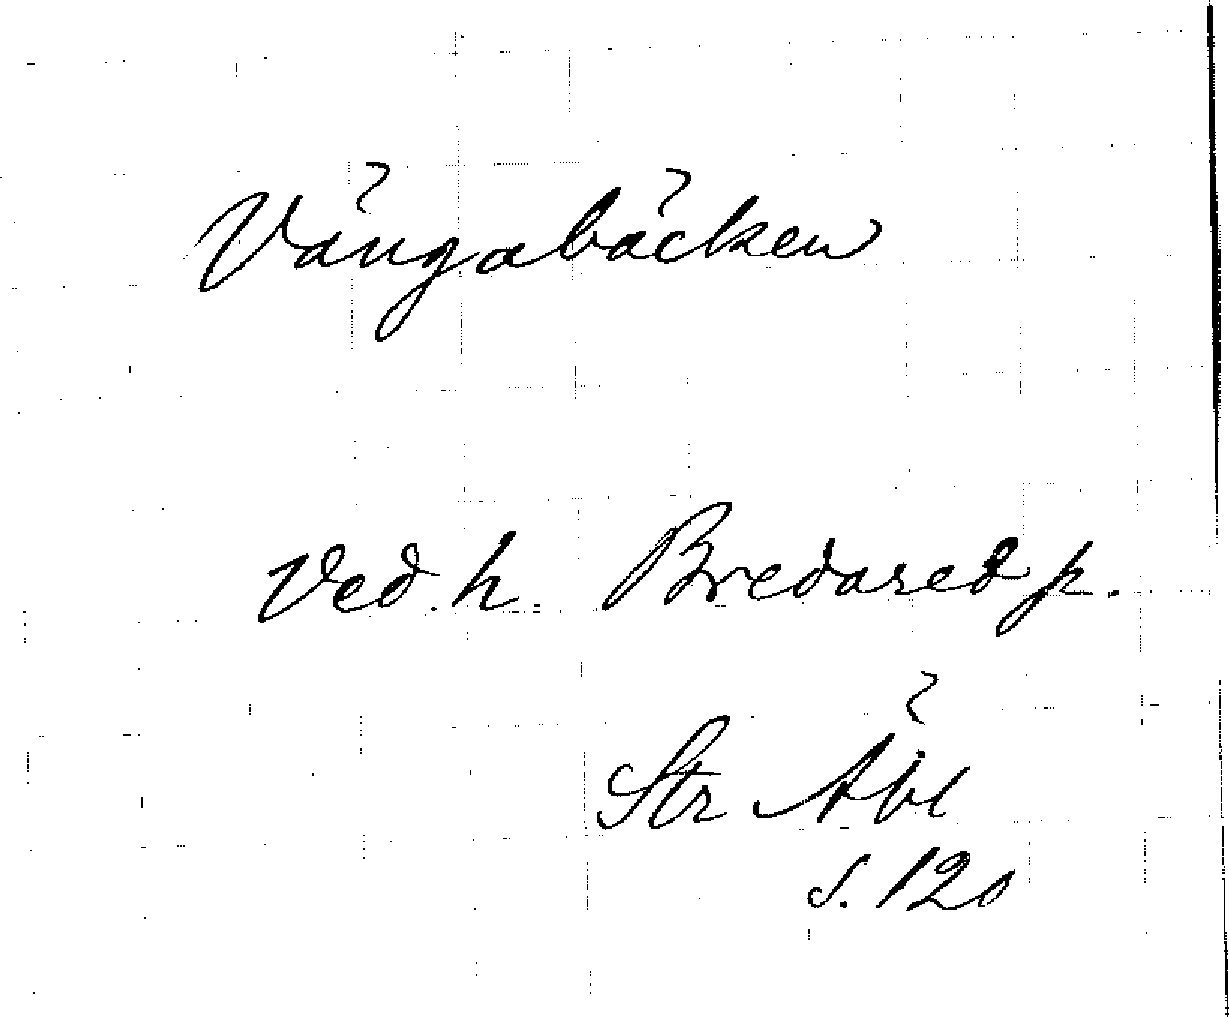 Vängabäcken
Ved. h. Bredared p.
Str Äbl
s. 120